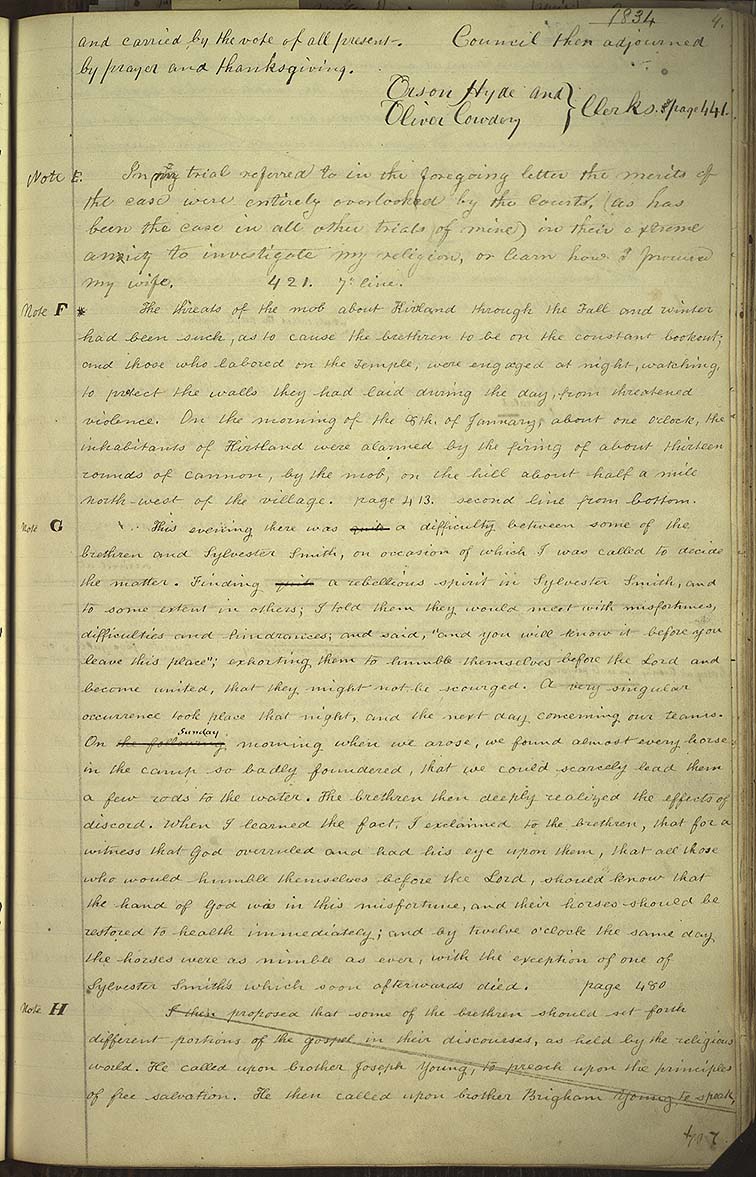 1834 4.
and carried by the vote of all present-. Council then adjourned
by prayer and thanksgiving.
Orson Hyde and
Oliver Cowdery } Clerks. page 441.
Note E. In my trial referred to in the foregoing letter the merits of
the case were entirely overlooked by the Courts, (as has
been the case in all other trials of mine) in their extreme
anxity to investigate my religion, or learn how I procured
my wife. 421. 7th line.
Note F * The threats of the mob about Kirtland through the Fall and winter
had been such, as to cause the brethren to be on the constant lookout;
and those who labored on the Temple, were engaged at night, watching,
to protect the walls they had laid during the day, from threatened
violence. On the morning of the 8th. of January, about one o'clock, the
inhabitants of Kirtland were alarmed by the firing of about thirteen
rounds of cannon, by the mob, on the hill about half a mile
north-west of the village. page 413. second line from bottom.
Note G This evening there was quite a difficulty between some of the
brethren and Sylvester Smith, on occasion of which I was called to decide
the matter. Finding quite a rebellious spirit in Sylvester Smith, and
to some extent in others; I told them they would meet with misfortunes,
difficulties and hindrances; and said, "and you will know it before you
leave this place"; exhorting them to humble themselves before the Lord and
become united, that they might not be scourged. A very singular
occurrence took place that night, and the next day concerning our teams.
Sunday
On the following morning when we arose, we found almost every horse
in the camp so badly foundered, that we could scarcely lead them
a few rods to the water. The brethren then deeply realized the effects of
discord. When I learned the fact, I exclaimed to the brethren, that for a
witness that God overruled and had his eye upon them, that all those
who would humble themselves before the Lord, should know that
the hand of God was in this misfortune, and their horses should be
restored to health immediately; and by twelve o'clock the same day
the horses were as nimble as ever, with the exception of one of
Sylvester Smith's which soon afterwards died. page 480
Note H I then proposed that some of the brethren should set forth
different portions of the gospel in their discourses, as held by the religious
world. He called upon brother Joseph Young, to preach upon the principles
of free salvation. He then called upon brother Brigham Young to speak,